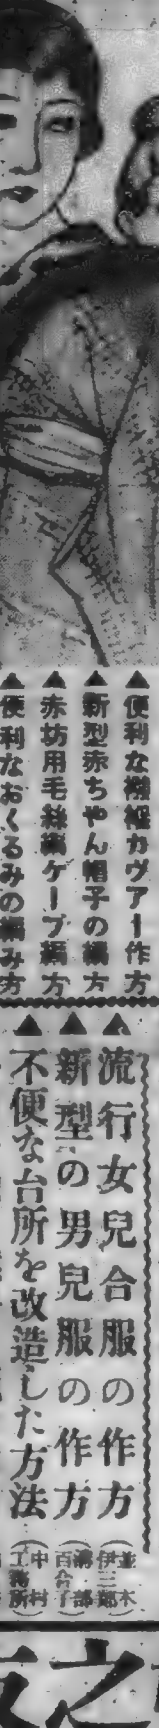 ▲便利な襁褓カヴアー作方
▲新型赤ちやん帽子の編方
▲赤坊用毛絲編ケープ編方
▲便利なおくるみの編み方
▲流行女兒合服の作方(並木伊三郎)
▲新型の男兒服の作方(溝部百合子)
▲不便な台所を改造した方法(中村工務所)
之